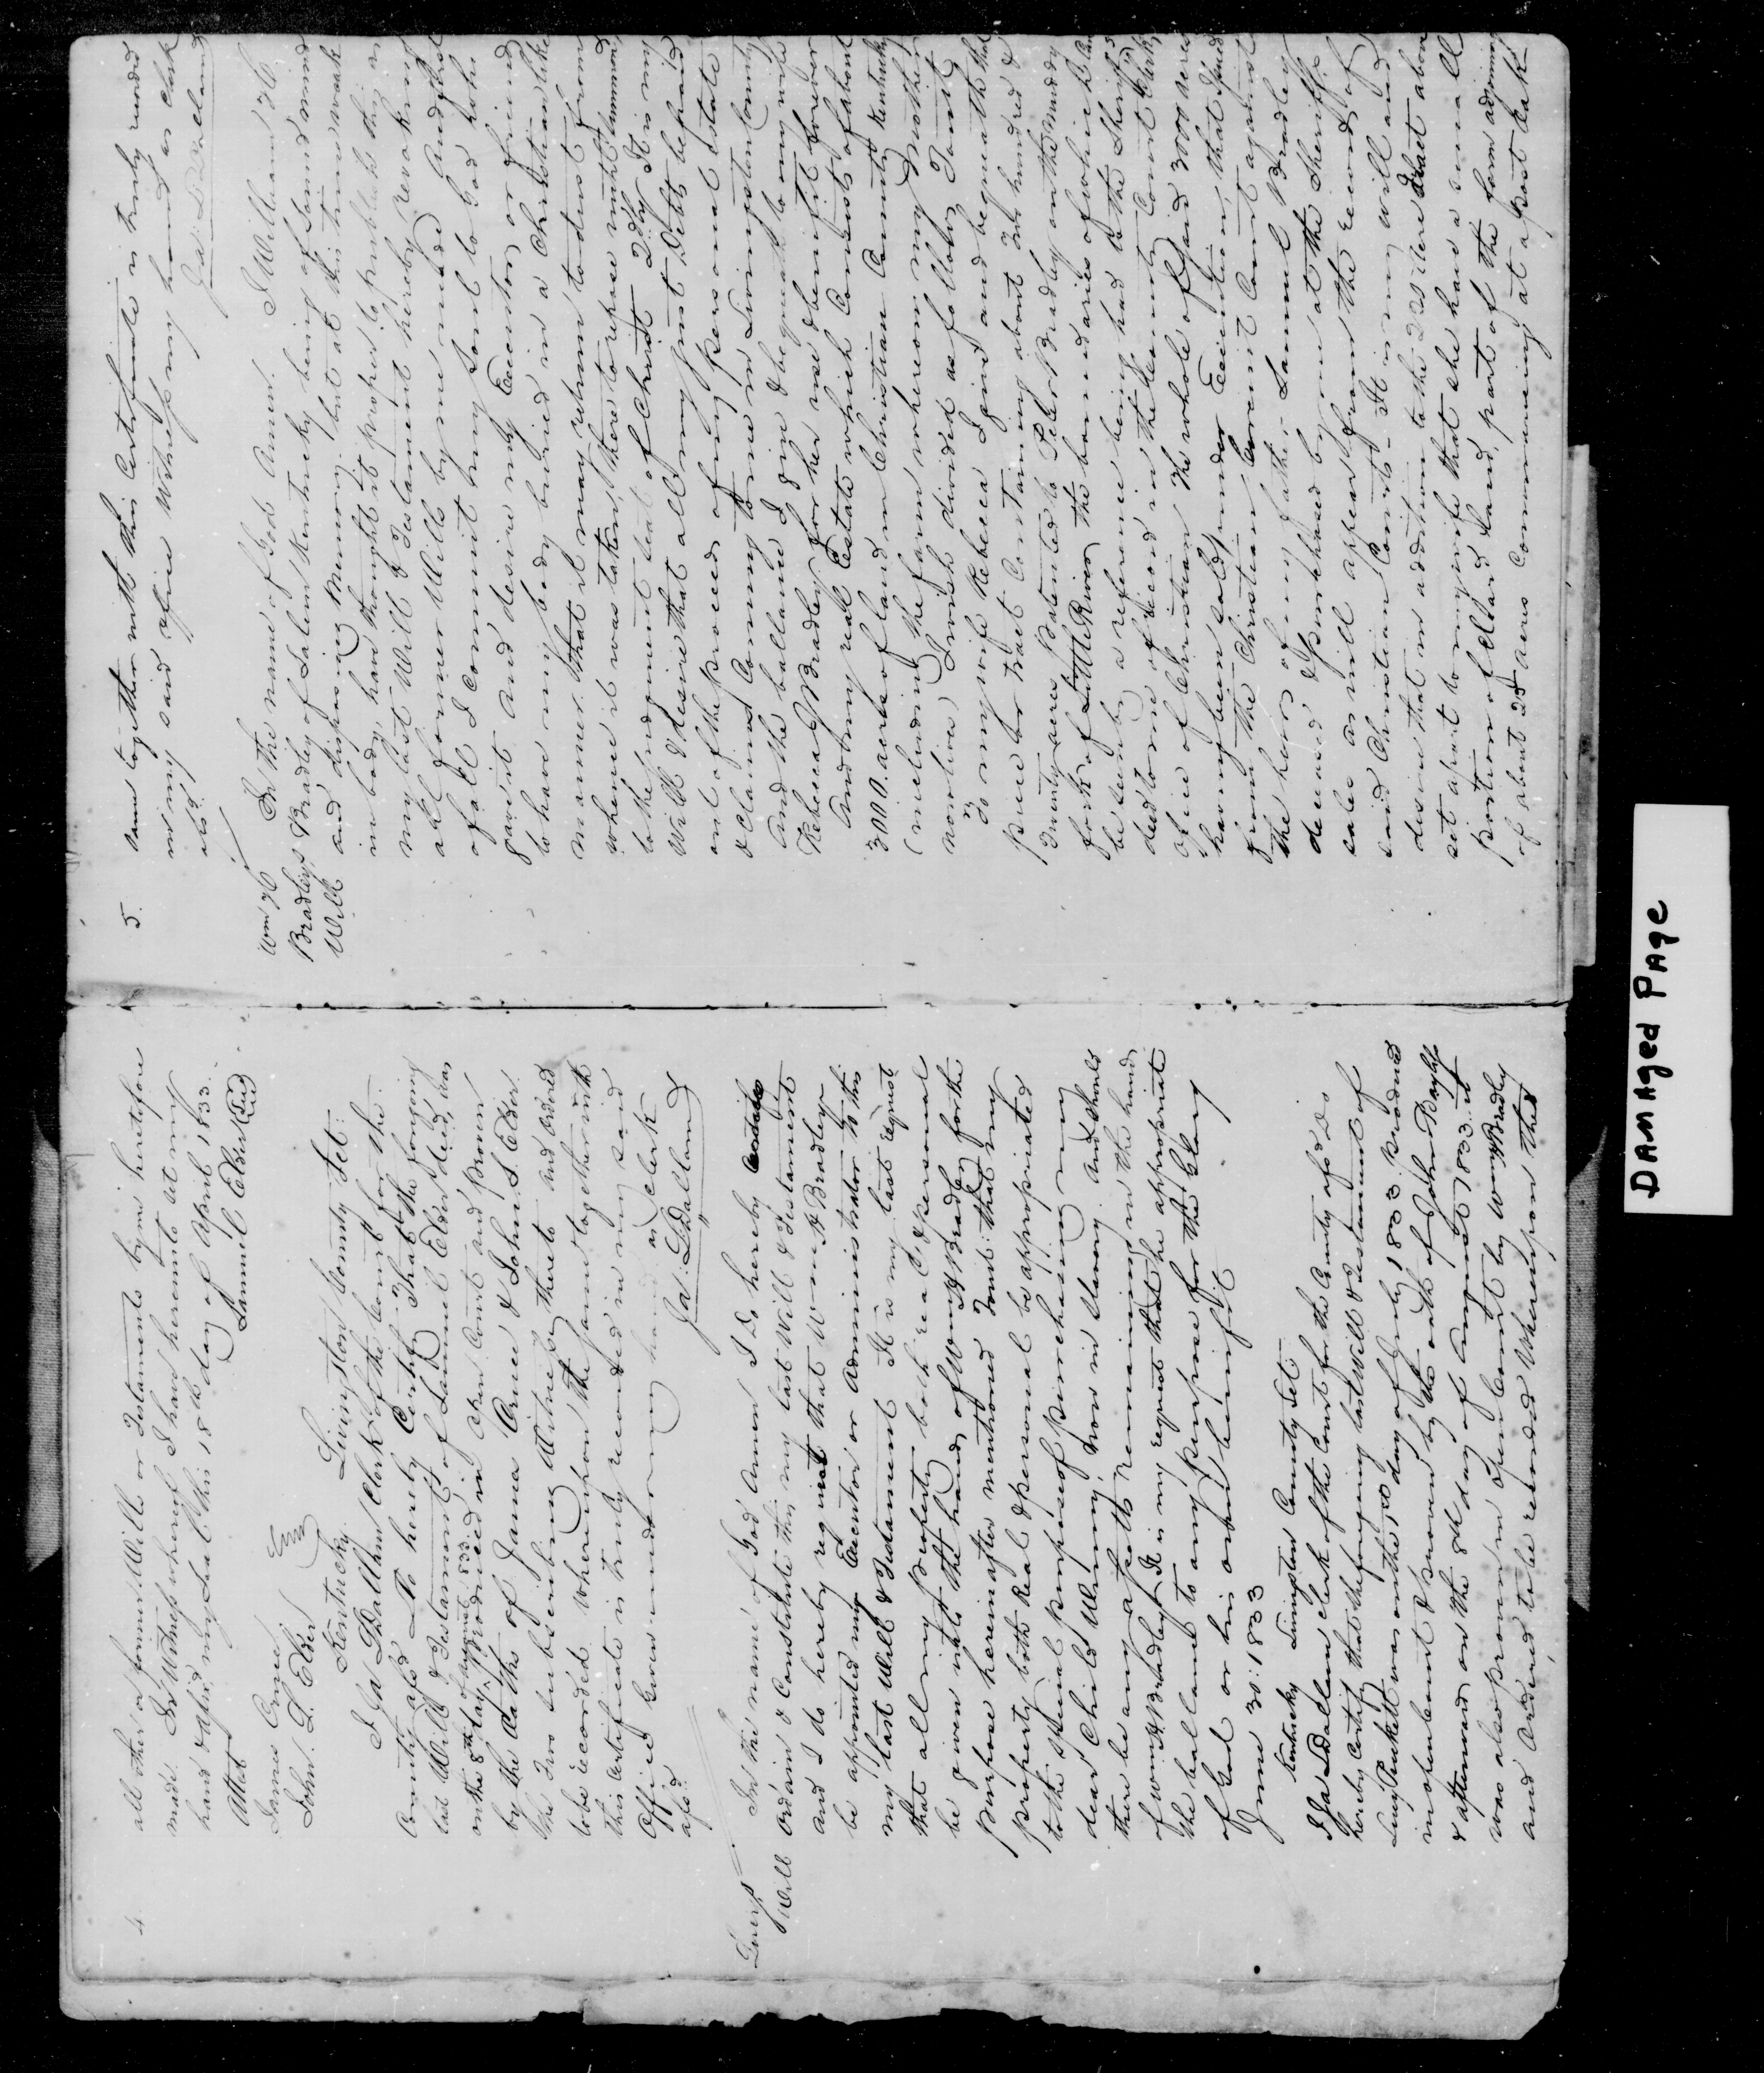 4
all other or former Wills or Testaments by me heretofore
made. In Witness whereof I have hereunto set my
hand & affixd my seal this 18th day of April 1833.
Attest Samuel Elder Seal
James Orme
John. S. Elder
Kentucky. Livingston County Sct:
I Ja. L Dallam Clerk of the Court for the
County afsd Do hereby Certify That the forgoing
last Will & Testament of Samuel Elder decd, was
on the 8th day of August 1833 produced in Open Court and proven
by the Oaths of James Orme & John S. Elder
the Two subscribing Witnesses thereto and ordered
to be recorded. Whereupon the same together with
this Certificate is truly recorded in my said
Office Given under my hand as Clerk
afsd. Ja: L Dallam
Lucy
Will
In the name of God Amen I do hereby
ordain & Constitute this my last Will & Testament
and I do hereby request that Wm H Bradley
be appointed my Executor or Administrator to this
my last Will & Testament It is my last request
that all my property both real & personal
be given into the hands of Wm H Bradley for the
purpose hereinafter mentioned Towit: that my
property both Real & personal be appropriated
to the special purpose of purchasing my
dear Child now in slavery. And should
there be any after its remaining in the hands
of Wm H Bradley It is my request that he appropriate
the ballance to any purpose for the Glory
of God or his own benifit
June 30: 1833
Kentucky Livingston County Sct
I Ja L Dallam clerk of the Court for the County afsd Do
hereby certify that the forgoing last Will & Testament of
Lucy Puckett was on the 1st day of July 1833 produced
in open Court & proven by the oath of John Bayliss
& afterward on the 8th day of August 1833 it
was also proven in open Court by Wm H Bradley
and Ordered to be recorded Whereupon the
5.
same together with this Certificate is truly recorded
in my said office Witness my hand as clerk
afsd. Ja: L Dallam
Wm H
Bradleys
Will
In the name of God Amen. I William H.
Bradley of Salem Kentucky being of sound mind
and disposing Memory. but at this time weak
in body, have thought it proper to publish this as
my last Will & Testament hereby revoking
all former Wills by me made And first
of all I commit my soul to God who
gave it And desire my Executor, or friend
to have my body buried in a Christian like
manner. that it may return to dust from
whence it was taken, there to repose until summoned
to the judgment seat of Christ 2dly It is my
Will & desire that all my just Debts be paid
out of the proceeds of my personal estate
& claims Coming to me in Livingston County
And the ballance I give & bequeath to my wife
Rebecca Bradley for her use & benifit forever
And my real Estate which Consists of about
3000. acres of land in Christian County Kentucky
(including the farm whereon my Mother
now lives) I wish divided as follows Towit
To my wife Rebecca I give and bequeath that
piece or tract Containing about Two hundred &
Twenty acres patented to Peter Bradley on the Muddy
fork of Little River, the boundaries of which Can
be seen by a reference being had to the Sheriffs
deed to me of record in the County Court Clerks
office of Christian The whole of said 3000 acres
having been sold under Execution, that issued
from the Christian Circuit Court against
the heirs of my father Samuel Bradley
deceased & purchased by me at the Sheriffs
sales as will appear from the record of
said Christian Courts - It is my will and
desire that in addition to the 220 acre tract above
set apart to my wife that she have a small
portion of Land, part of the farm adjoining
of about 25 acres Commencing at a post oak
DAMAged PAge